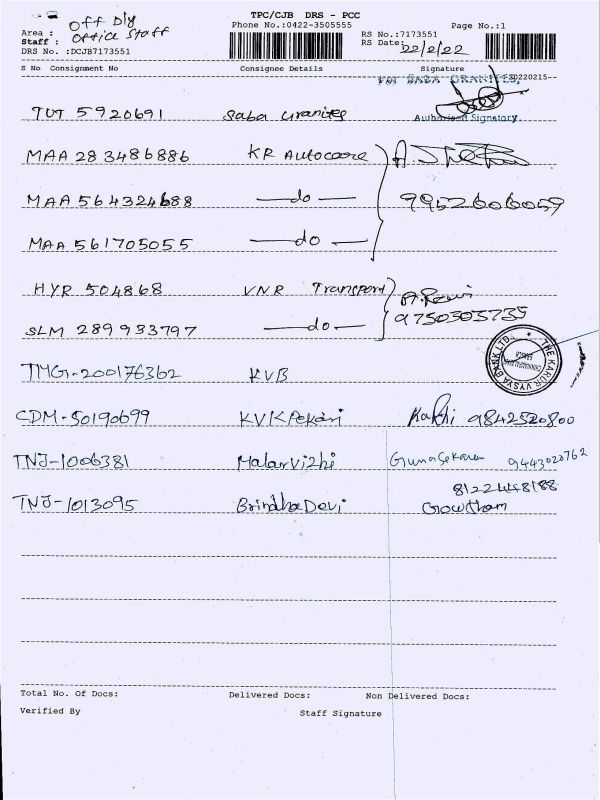 TPC/CJB DRS - PCC
Phone No.:0422-3505555 Page No.:1
Area : off Dly
Staff : office Staff
RS No.:7173551
RS Date: 22/2/22
DRS No. :DCJB7173551
S No Consignment No Consignee Details Signature
For SABA GRANITES, 20220215--
TUT 5920691 Saba Granites
Authorised Signatory.
MAA 283486886 KR Autocare
MAA 564324688 —do— 9952606059
MAA 561705055 —do—
HYR 504868 VNR Transport A. Ravi
SLM 289933797 —do— 9750305735
THE KARUR VYSYA BANK LTD.
TMG-200176362 KVB
CDM-50190699 KVK Pekari 9842520800
TNJ-1006381 Malarvizhi Gunasekaran 9443020762
8122448188
TNJ-1013095 Brindha Devi Gowtham
Total No. Of Docs: Delivered Docs: Non Delivered Docs:
Verified By Staff Signature